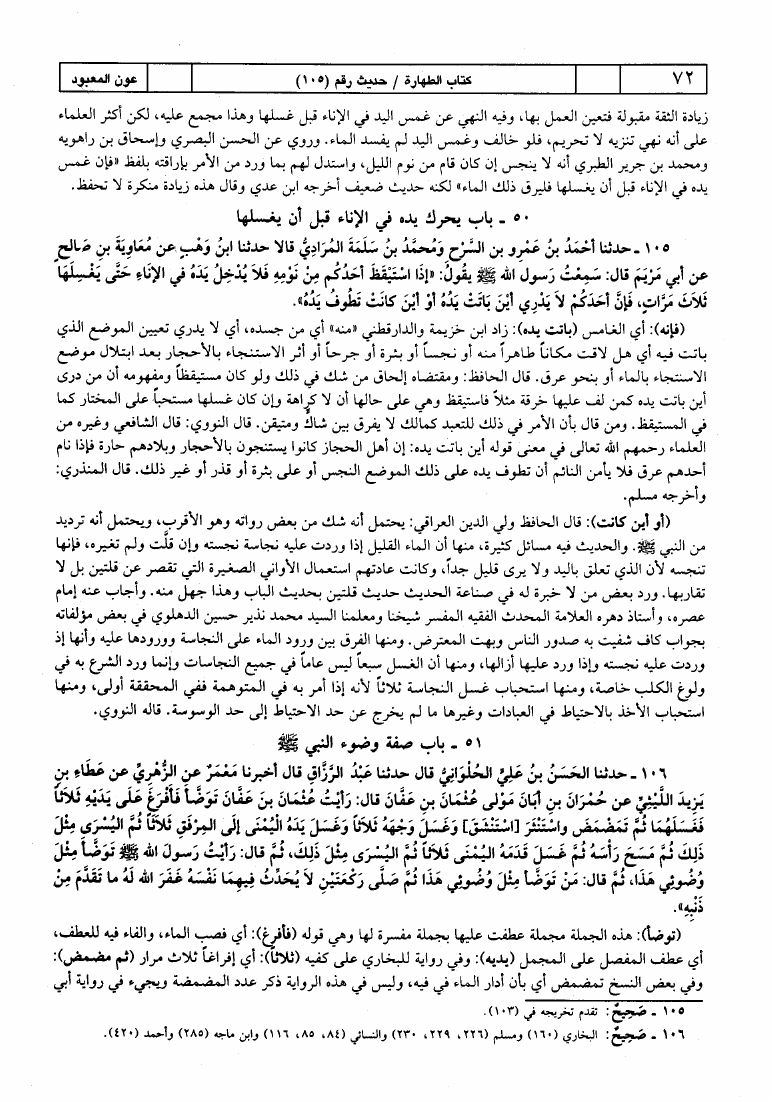 ٧٢
كتاب الطهارة / حديث رقم (١٠٥)
عون المعبود
زيادة الثقة مقبولة فتعين العمل بها، وفيه النهي عن غمس اليد في الإناء قبل غسلها وهذا مجمع عليه، لكن أكثر العلماء
على أنه نهي تنزيه لا تحريم، فلو خالف وغمس اليد لم يفسد الماء. وروي عن الحسن البصري وإسحاق بن راهويه
ومحمد بن جرير الطبري أنه لا ينجس إن كان قام من نوم الليل، واستدل لهم بما ورد من الأمر بإراقته بلفظ «فإن غمس
يده في الإناء قبل أن يغسلها فليرق ذلك الماء» لكنه حديث ضعيف أخرجه ابن عدي وقال هذه زيادة منكرة لا تحفظ.
٥٠ ـ باب يحرك يده في الإناء قبل أن يغسلها
١٠٥ ـ حدثنا أحْمَدُ بنُ عَمْرِو بنِ السَّرْحِ وَمُحمَّدُ بنُ سَلَمَةَ المُرَادِيُّ قالا حدثنا ابنُ وَهْبٍ عن مُعَاوِيَةَ بنِ صَالحٍ
عن أبي مَرْيَمَ قال: سَمِعْتُ رسول الله ﷺ يقُولُ: «إذَا اسْتَيْقَظَ أحَدُكُم مِنْ نَوْمِهِ فَلاَ يُدْخِلْ يَدَهُ في الإنَاءِ حَتَّى يَغْسِلَهَا
ثَلاَثَ مَرَّاتٍ، فَإنَّ أحَدَكُمْ لاَ يَدْرِي أيْنَ بَاتَتْ يَدُهُ أوْ أيْنَ كانَتْ تَطُوفُ يَدُهُ».
(فإنه): أي الغامس (باتت يده): زاد ابن خزيمة والدارقطني «منه» أي من جسده، أي لا يدري تعيين الموضع الذي
باتت فيه أي هل لاقت مكاناً طاهراً منه أو نجساً أو بثرة أو جرحاً أو أثر الاستنجاء بالأحجار بعد ابتلال موضع
الاستنجاء بالماء أو بنحو عرق. قال الحافظ: ومقتضاه إلحاق من شك في ذلك ولو كان مستيقظاً ومفهومه أن من درى
أين باتت يده كمن لف عليها خرقة مثلاً فاستيقظ وهي على حالها أن لا كراهة وإن كان غسلها مستحباً على المختار كما
في المستيقظ. ومن قال بأن الأمر في ذلك للتعبد كمالك لا يفرق بين شاكّ ومتيقن. قال النووي: قال الشافعي وغيره من
العلماء رحمهم الله تعالى في معنى قوله أين باتت يده: إن أهل الحجاز كانوا يستنجون بالأحجار وبلادهم حارة فإذا نام
أحدهم عرق فلا يأمن النائم أن تطوف يده على ذلك الموضع النجس أو على بثرة أو قذر أو غير ذلك. قال المنذري:
وأخرجه مسلم.
(أو أين كانت): قال الحافظ ولي الدين العراقي: يحتمل أنه شك من بعض رواته وهو الأقرب، ويحتمل أنه ترديد
من النبي ﷺ. والحديث فيه مسائل كثيرة، منها أن الماء القليل إذا وردت عليه نجاسة نجسته وإن قلّت ولم تغيره، فإنها
تنجسه لأن الذي تعلق باليد ولا يرى قليل جداً، وكانت عادتهم استعمال الأواني الصغيرة التي تقصر عن قلتين بل لا
تقاربها. ورد بعض من لا خبرة له في صناعة الحديث حديث قلتين بحديث الباب وهذا جهل منه. وأجاب عنه إمام
عصره، وأستاذ دهره العلامة المحدث الفقيه المفسر شيخنا ومعلمنا السيد محمد نذير حسين الدهلوي في بعض مؤلفاته
بجواب كاف شفيت به صدور الناس وبهت المعترض. ومنها الفرق بين ورود الماء على النجاسة وورودها عليه وأنها إذ
وردت عليه نجسته وإذا ورد عليها أزالها، ومنها أن الغسل سبعاً ليس عاماً في جميع النجاسات وإنما ورد الشرع به في
ولوغ الكلب خاصة، ومنها استحباب غسل النجاسة ثلاثاً لأنه إذا أمر به في المتوهمة ففي المحققة أولى، ومنها
استحباب الأخذ بالاحتياط في العبادات وغيرها ما لم يخرج عن حد الاحتياط إلى حد الوسوسة. قاله النووي.
٥١ ـ باب صفة وضوء النبي ﷺ
١٠٦ ـ حدثنا الحَسَنُ بنُ عَلِيٍّ الحُلْوَانِيُّ قال حدثنا عَبْدُ الرَّزَّاقِ قال أخبرنا مَعْمَرٌ عن الزُّهْرِيِّ عن عَطَاءِ بنِ
يَزِيدَ اللَّيْثِيِّ عن حُمْرَانَ بنِ أبَانَ مَوْلَى عُثْمَانَ بنِ عَفَّانَ قال: رَأيْتُ عُثْمَانَ بنَ عَفَّانَ تَوَضَّأ فَأفْرَغَ عَلَى يَدَيْهِ ثَلاَثاً
فَغَسَلَهُمَا ثُمَّ تَمَضْمَضَ واسْتَنْثَرَ [اسْتَنْشَقَ] وَغَسَلَ وَجْهَهُ ثَلاَثاً وَغَسَلَ يَدَهُ اليُمْنَى إلى المِرْفَقِ ثَلاَثاً ثُمَّ اليُسْرَى مِثْلَ
ذَلِكَ ثُمَّ مَسَحَ رَأسَهُ ثُمَّ غَسَلَ قَدَمَهُ اليُمْنَى ثَلاَثاً ثُمَّ اليُسْرَى مِثْلَ ذَلِكَ، ثُمَّ قال: رَأيْتُ رسولَ الله ﷺ تَوَضَّأ مِثْلَ
وُضُوئِي هَذَا، ثُمَّ قال: مَنْ تَوَضَّأ مِثْلَ وُضُوئِي هَذَا ثُمَّ صَلَّى رَكْعَتَيْنِ لاَ يُحَدِّثُ فِيهِمَا نَفْسَهُ غَفَرَ الله لَهُ ما تَقَدَّمَ مِنْ
ذَنْبِهِ».
(توضأ): هذه الجملة مجملة عطفت عليها بجملة مفسرة لها وهي قوله (فأفرغ): أي فصب الماء، والفاء فيه للعطف،
أي عطف المفصل على المجمل (يديه): وفي رواية للبخاري على كفيه (ثلاثاً): أي إفراغاً ثلاث مرار (ثم مضمض):
وفي بعض النسخ تمضمض أي بأن أدار الماء في فيه، وليس في هذه الرواية ذكر عدد المضمضة ويجيء في رواية أبي
١٠٥ ـ صَحِيحٌ: تقدم تخريجه في (١٠٣).
١٠٦ ـ صَحِيحٌ: البخاري (١٦٠) ومسلم (٢٢٦، ٢٢٩، ٢٣٠) والنسائي (٨٤، ٨٥، ١١٦) وابن ماجه (٢٨٥) وأحمد (٤٢٠).